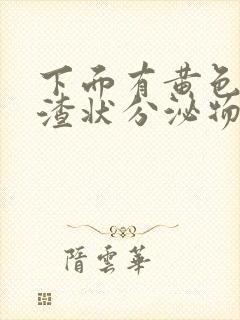 下面有黄色
渣状分泌物
隋雲華